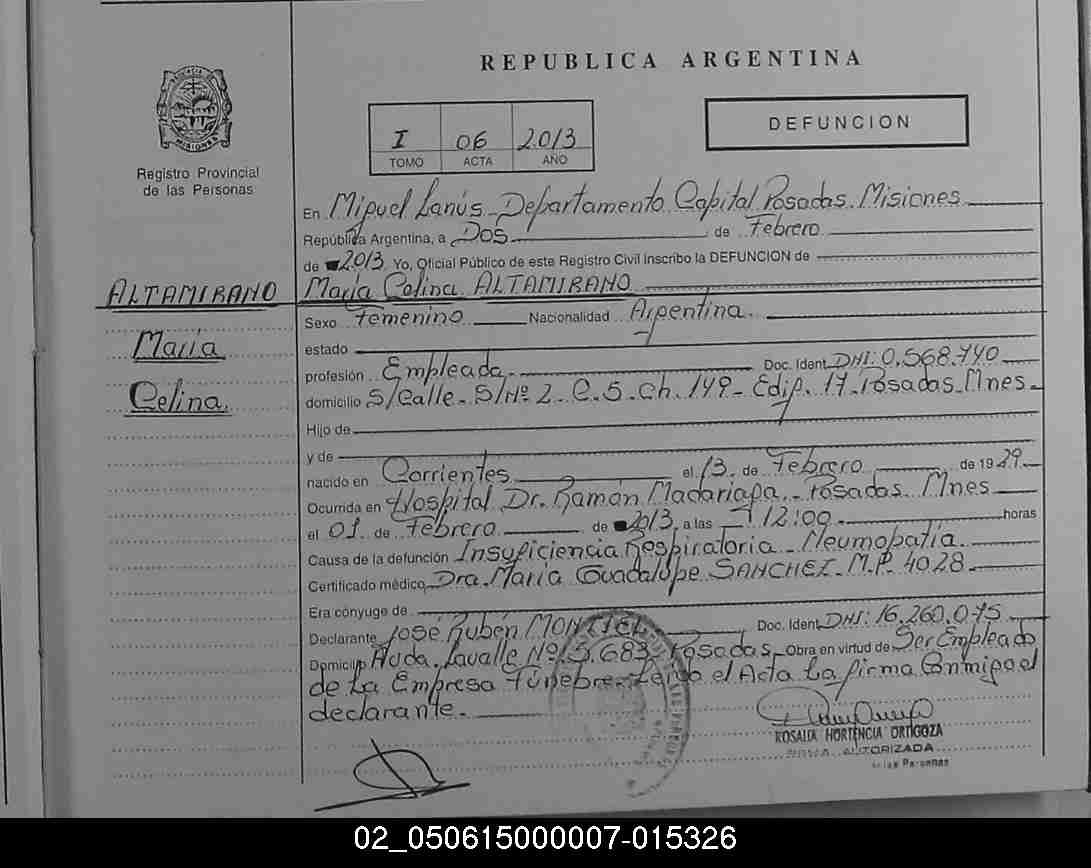 REPUBLICA ARGENTINA
PROVINCIA DE
MISIONES
Registro Provincial
de las Personas
I 06 2013
TOMO ACTA AÑO
DEFUNCION
En Miguel Lanús - Departamento Capital Posadas. Misiones
República Argentina, a Dos de Febrero
de 2013 Yo, Oficial Público de este Registro Civil inscribo la DEFUNCION de
ALTAMIRANO María Celina ALTAMIRANO
Sexo Femenino Nacionalidad Argentina.
María
estado
profesión Empleada. Doc. Ident. DNI: 0.568.440
Celina.
domicilio S/Calle - S/Nº 2 - C. 5. Ch. 149 - Edif. 17 - Posadas. Mnes -
Hijo de
y de
nacido en Corrientes el 13 de Febrero de 1929
Ocurrida en Hospital Dr. Ramón Madariaga. - Posadas. Mnes
el 01 de Febrero de 2013, a las 12:00 horas
Causa de la defunción Insuficiencia Respiratoria - Neumopatía.
Certificado médico, Dra. María Guadalupe SANCHEZ. M.P. 4028 -
Era cónyuge de
Declarante José Rubén Doc. Ident. DNI: 16.260.075
Domicilio Avda. Lavalle Nº 5.683 Posadas - Obra en virtud de Ser Empleado
de La Empresa Fúnebre. Leído el Acta La firma Conmigo el
declarante. -
ROSALIA HORTENCIA ORTIGOZA
FIRMA AUTORIZADA
de las Personas
02_050615000007-015326